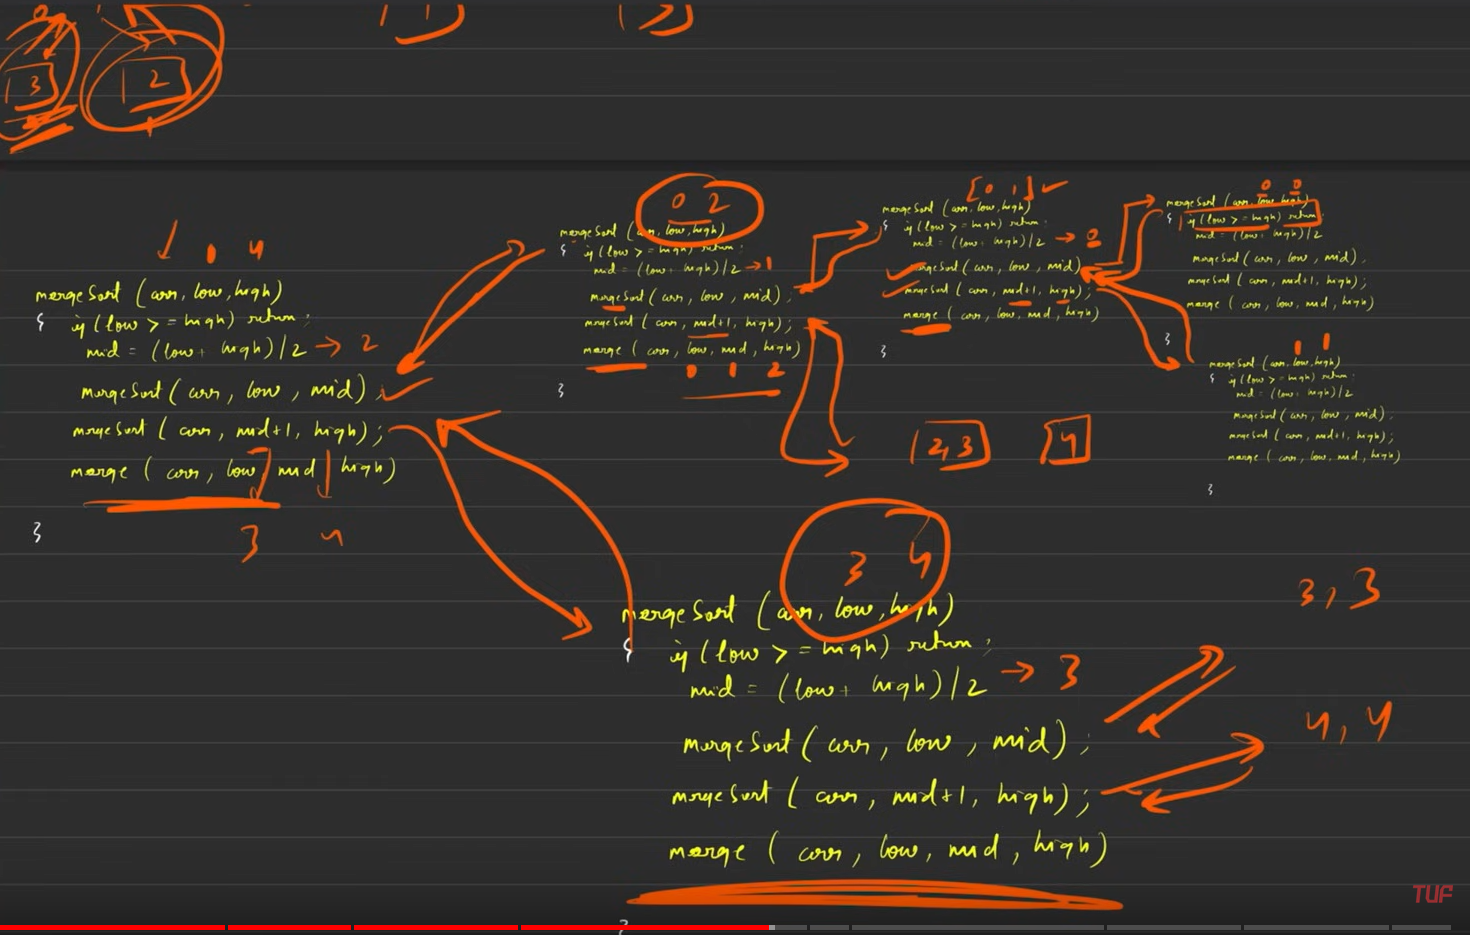 3
2
0 4
mergeSort (arr, low, high)
{
if (low >= high) return;
mid = (low + high)/2 → 2
mergeSort (arr, low, mid);
mergeSort (arr, mid+1, high);
merge (arr, low, mid, high)
3 4
}
0 2
mergeSort (arr, low, high)
{
if (low >= high) return;
mid = (low + high)/2 → 1
mergeSort (arr, low, mid);
mergeSort (arr, mid+1, high);
merge (arr, low, mid, high)
0 1 2
}
[0 1]
mergeSort (arr, low, high)
{
if (low >= high) return;
mid = (low + high)/2 → 0
mergeSort (arr, low, mid)
mergeSort (arr, mid+1, high);
merge (arr, low, mid, high)
}
0 0
mergeSort (arr, low, high)
{
if (low >= high) return;
mid = (low + high)/2
mergeSort (arr, low, mid);
mergeSort (arr, mid+1, high);
merge (arr, low, mid, high)
}
1 1
mergeSort (arr, low, high)
{
if (low >= high) return;
mid = (low + high)/2
mergeSort (arr, low, mid);
mergeSort (arr, mid+1, high);
merge (arr, low, mid, high)
}
2,3
4
3 4
mergeSort (arr, low, high)
{
if (low >= high) return;
mid = (low + high)/2 → 3
mergeSort (arr, low, mid);
mergeSort (arr, mid+1, high);
merge (arr, low, mid, high)
3, 3
4, 4
TUF